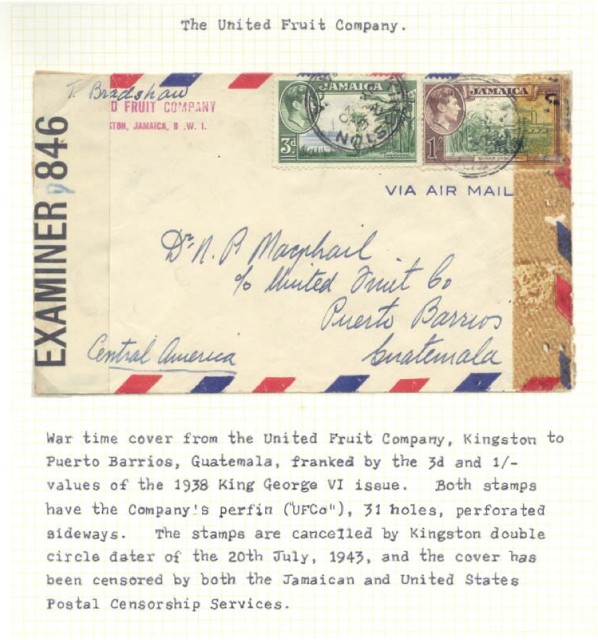 The United Fruit Company.
T. Bradshaw
D FRUIT COMPANY
STON, JAMAICA, B.W.I.
JAMAICA
3d
JAMAICA
1/-
VIA AIR MAIL
EXAMINER 846
Dr. N. P. Macphail
c/o United Fruit Co
Puerto Barrios
Central America
Guatemala
War time cover from the United Fruit Company, Kingston to
Puerto Barrios, Guatemala, franked by the 3d and 1/-
values of the 1938 King George VI issue. Both stamps
have the Company's perfin ("UFCo"), 31 holes, perforated
sideways. The stamps are cancelled by Kingston double
circle dater of the 20th July, 1943, and the cover has
been censored by both the Jamaican and United States
Postal Censorship Services.